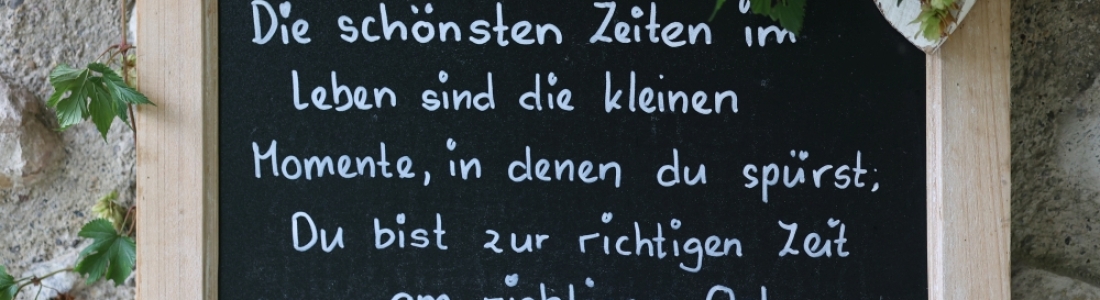 Die schönsten Zeiten im
Leben sind die kleinen
Momente, in denen du spürst;
Du bist zur richtigen Zeit
am